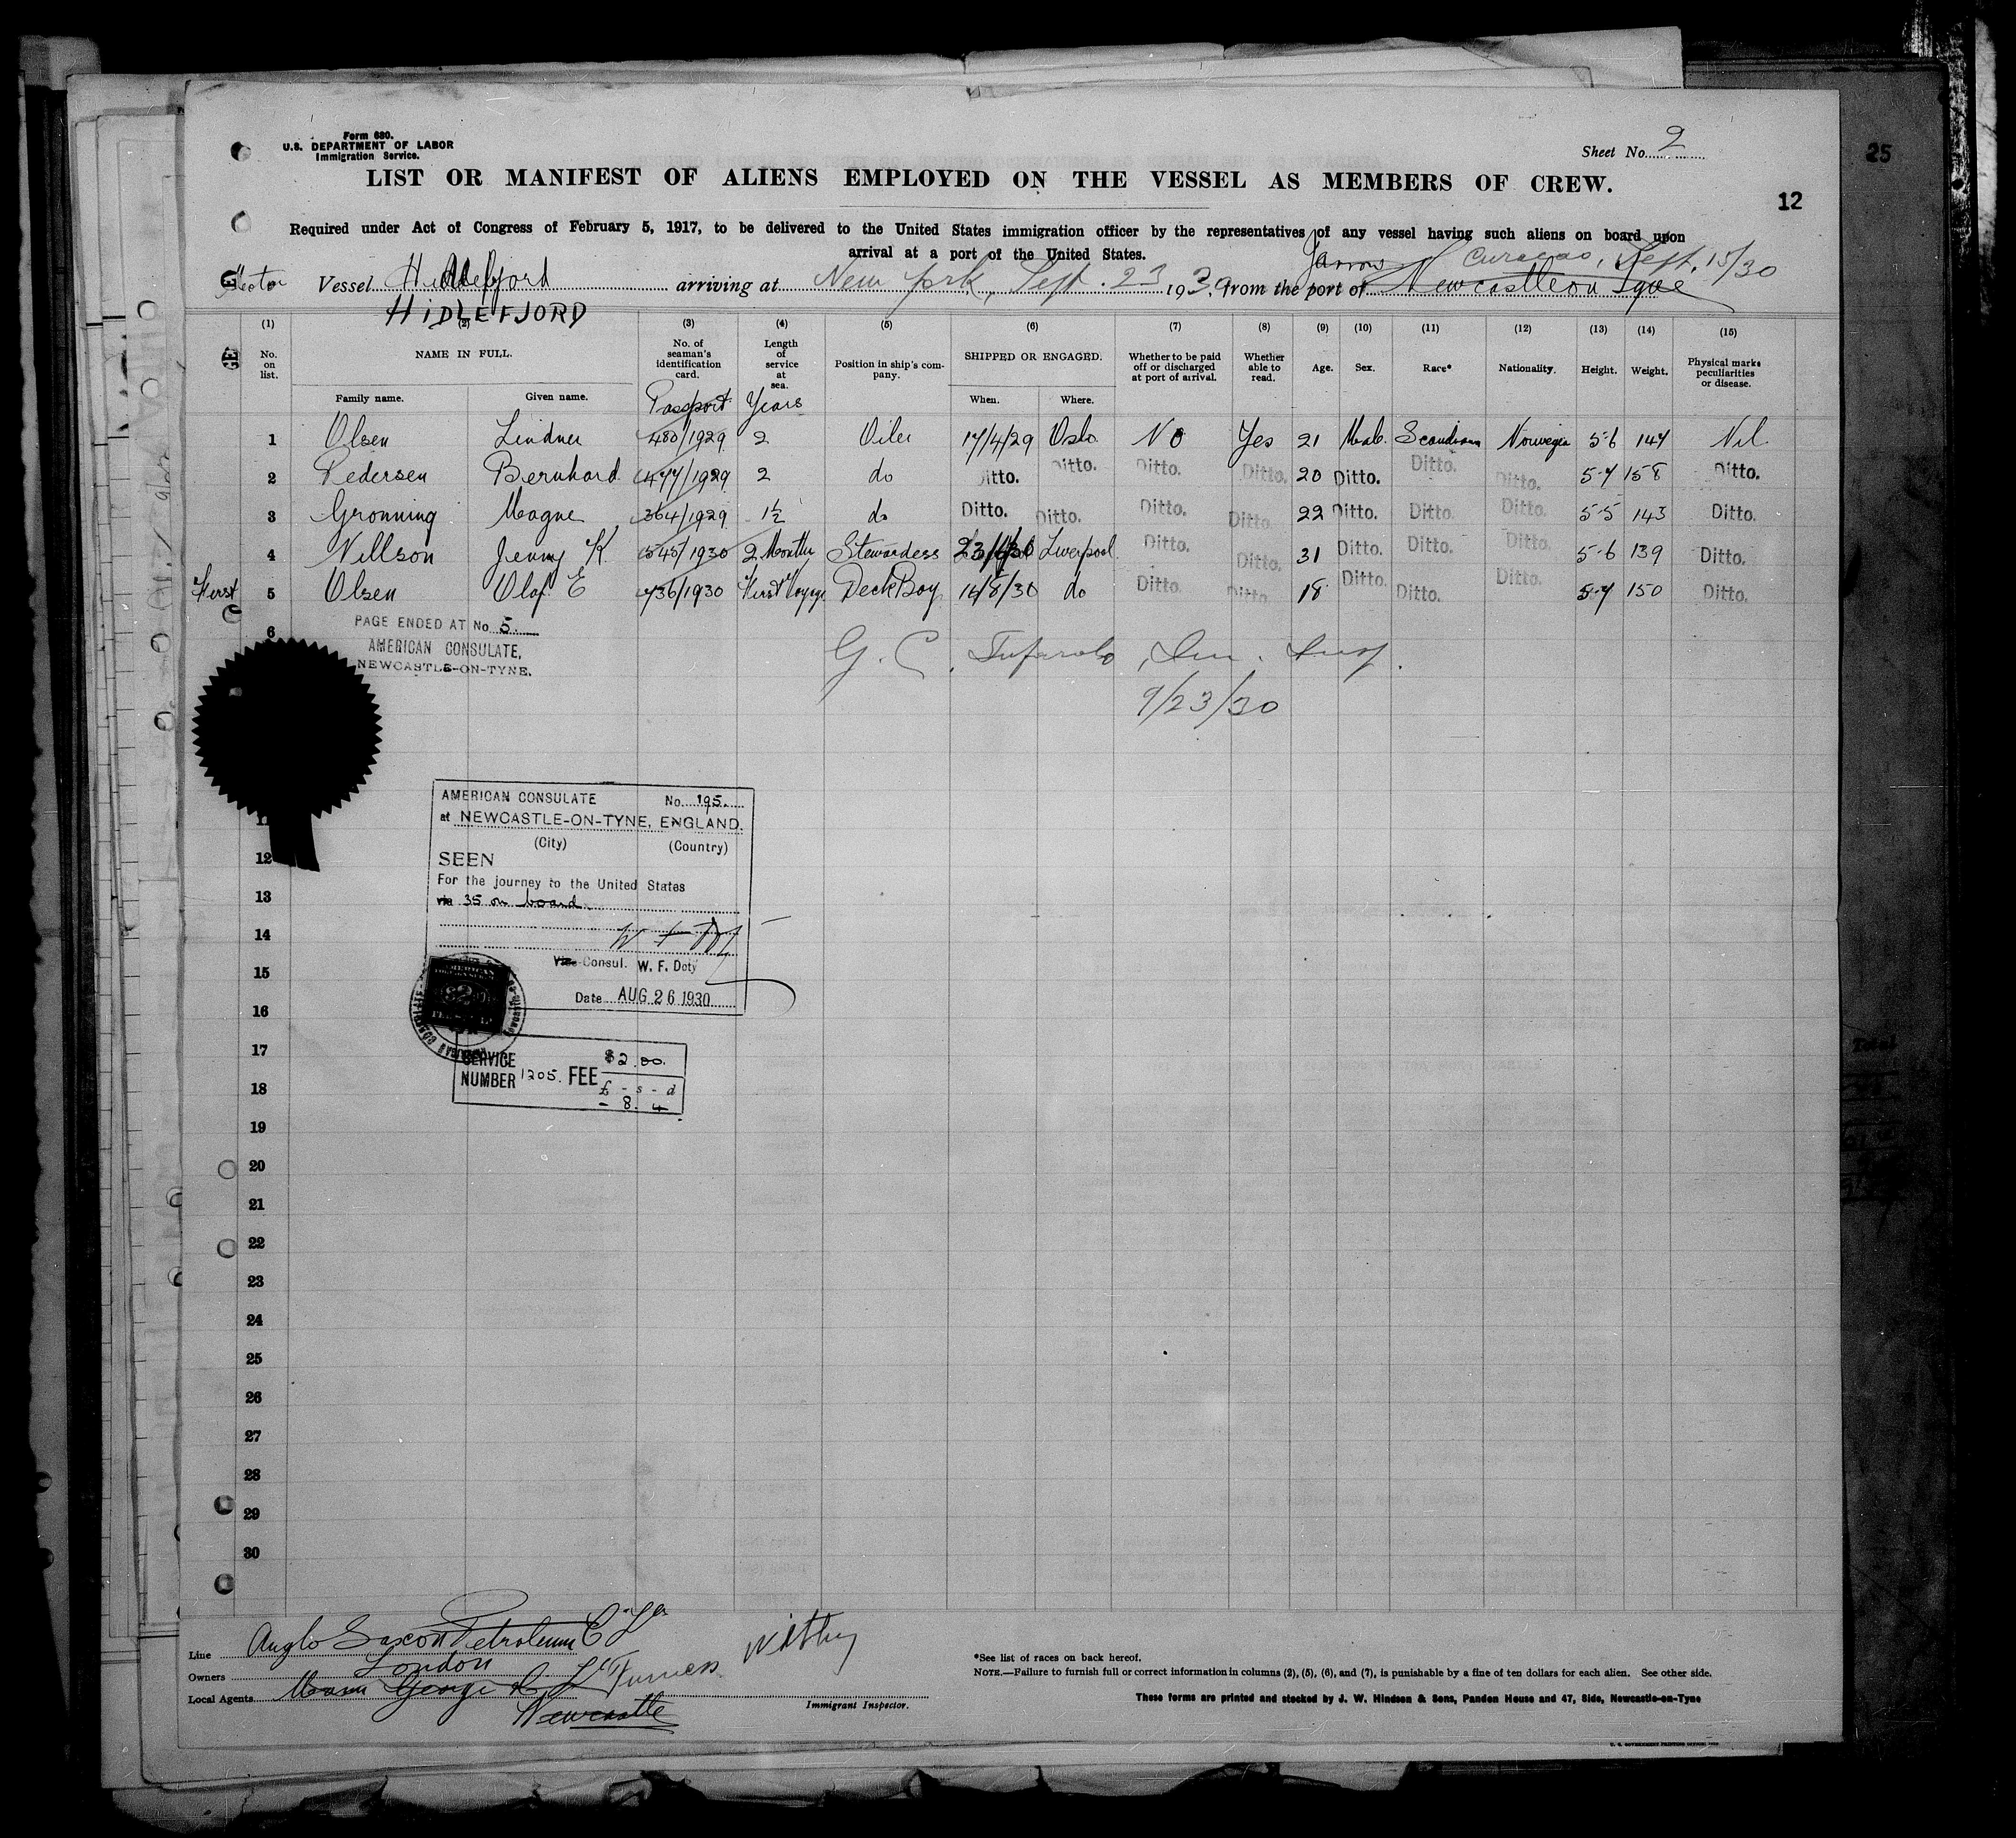 Form 680.
U.S. DEPARTMENT OF LABOR
Immigration Service.
Sheet No. 2
25
LIST OR MANIFEST OF ALIENS EMPLOYED ON THE VESSEL AS MEMBERS OF CREW.
12
Required under Act of Congress of February 5, 1917, to be delivered to the United States immigration officer by the representatives of any vessel having such aliens on board upon
arrival at a port of the United States.
Motor Vessel Hidlefjord arriving at New York, Sept. 23 1930, from the port of Newcastle on Tyne Curacao, Sept. 15/30
HIDLEFJORD
(1) (2) (3) (4) (5) (6) (7) (8) (9) (10) (11) (12) (13) (14) (15)
No. on list. NAME IN FULL. No. of seaman's identification card. Length of service at sea. Position in ship's company. SHIPPED OR ENGAGED. Whether to be paid off or discharged at port of arrival. Whether able to read. Age. Sex. Race* Nationality. Height. Weight. Physical marks peculiarities or disease.
Family name. Given name. Passport Years When. Where.
1 Olsen Lindner 480/1929 2 Oiler 17/4/29 Oslo No Yes 21 Male Norwegia 5-6 147 Nil
2 Pedersen Bernhard 477/1929 2 do Ditto. Ditto. Ditto. Ditto. 20 Ditto. Ditto. Ditto. 5-7 158 Ditto.
3 Gronning Magne 364/1929 1½ do Ditto. Ditto. Ditto. Ditto. 22 Ditto. Ditto. Ditto. 5-5 143 Ditto.
4 Nillson Jenny K. 545/1930 2 Months Stewardess Liverpool Ditto. Ditto. 31 Ditto. Ditto. Ditto. 5-6 139 Ditto.
First 5 Olsen Olaf E 736/1930 First Voyage Deck Boy 16/8/30 do Ditto. Ditto. 18 Ditto. Ditto. Ditto. 5-7 150 Ditto.
6
PAGE ENDED AT No 5.
AMERICAN CONSULATE,
NEWCASTLE-ON-TYNE.
G. C.
9/23/30
AMERICAN CONSULATE No. 195.
at NEWCASTLE-ON-TYNE, ENGLAND.
(City) (Country)
SEEN
For the journey to the United States
via 35 on board
Vice Consul. W. F. Doty
Date AUG 26 1930
SERVICE NUMBER 1205. FEE $2.00.
£ - s - d
- 8. 4
12
13
14
15
16
17
18
19
20
21
22
23
24
25
26
27
28
29
30
Line Anglo Saxon Petroleum Co Ld
Owners London
Local Agents Mann George & Co Ld Furness Withy
Newcastle
Immigrant Inspector.
*See list of races on back hereof.
NOTE.—Failure to furnish full or correct information in columns (2), (5), (6), and (7), is punishable by a fine of ten dollars for each alien. See other side.
These forms are printed and stocked by J. W. Hindson & Sons, Pandon House and 47, Side, Newcastle-on-Tyne